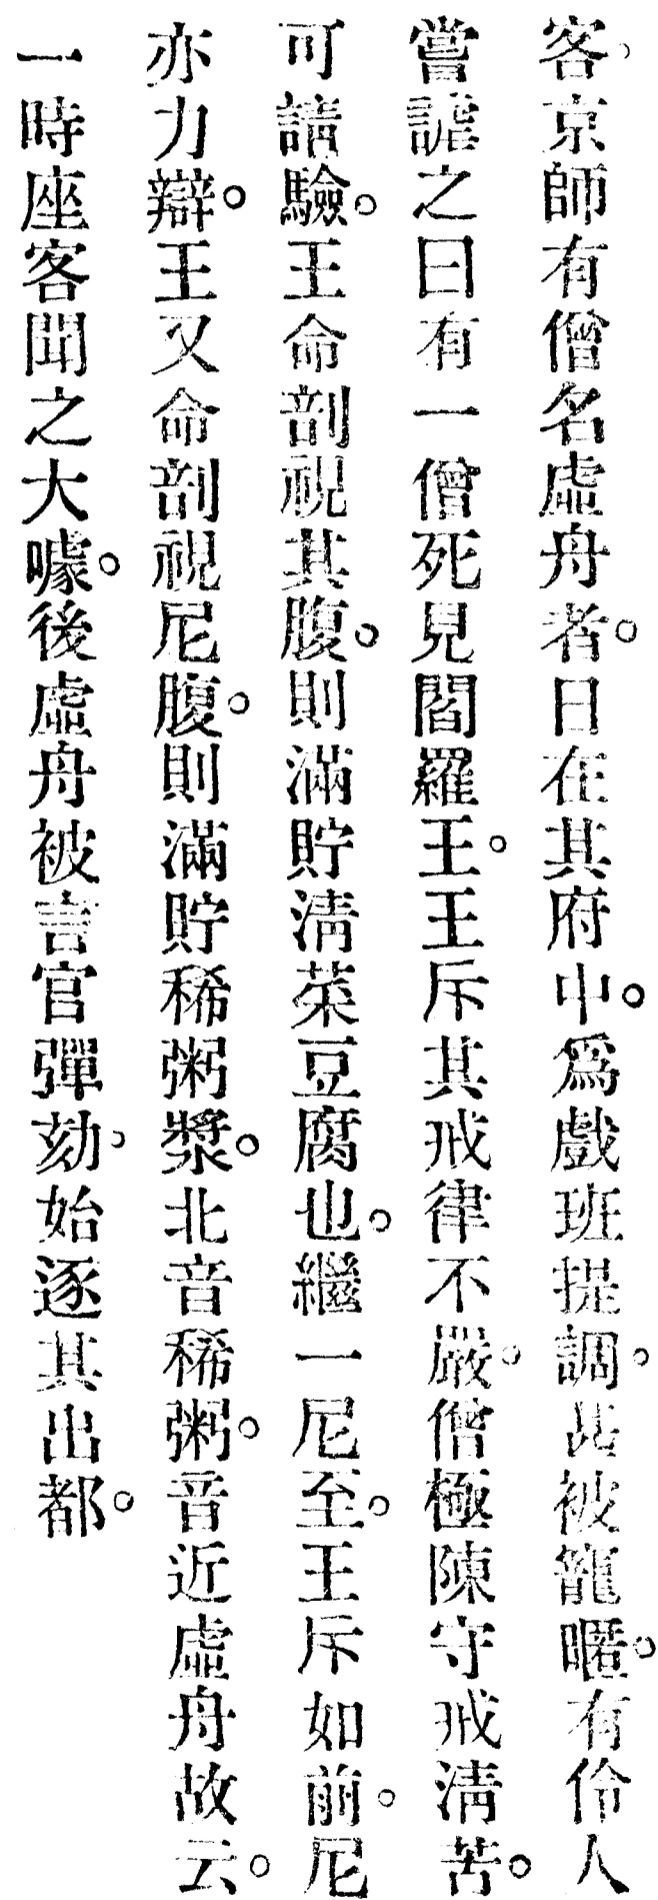 客。京師有僧名虛舟者。日在其府中。爲戲班提調。甚被寵暱。有伶人
嘗謔之曰有一僧死見閻羅王。王斥其戒律不嚴。僧極陳守戒淸苦。
可請驗。王命剖視其腹。則滿貯淸菜豆腐也。繼一尼至。王斥如前。尼
亦力辯。王又命剖視尼腹。則滿貯稀粥漿。北音稀粥。音近虛舟故云。
一時座客聞之大噱。後虛舟被言官彈劾。始逐其出都。